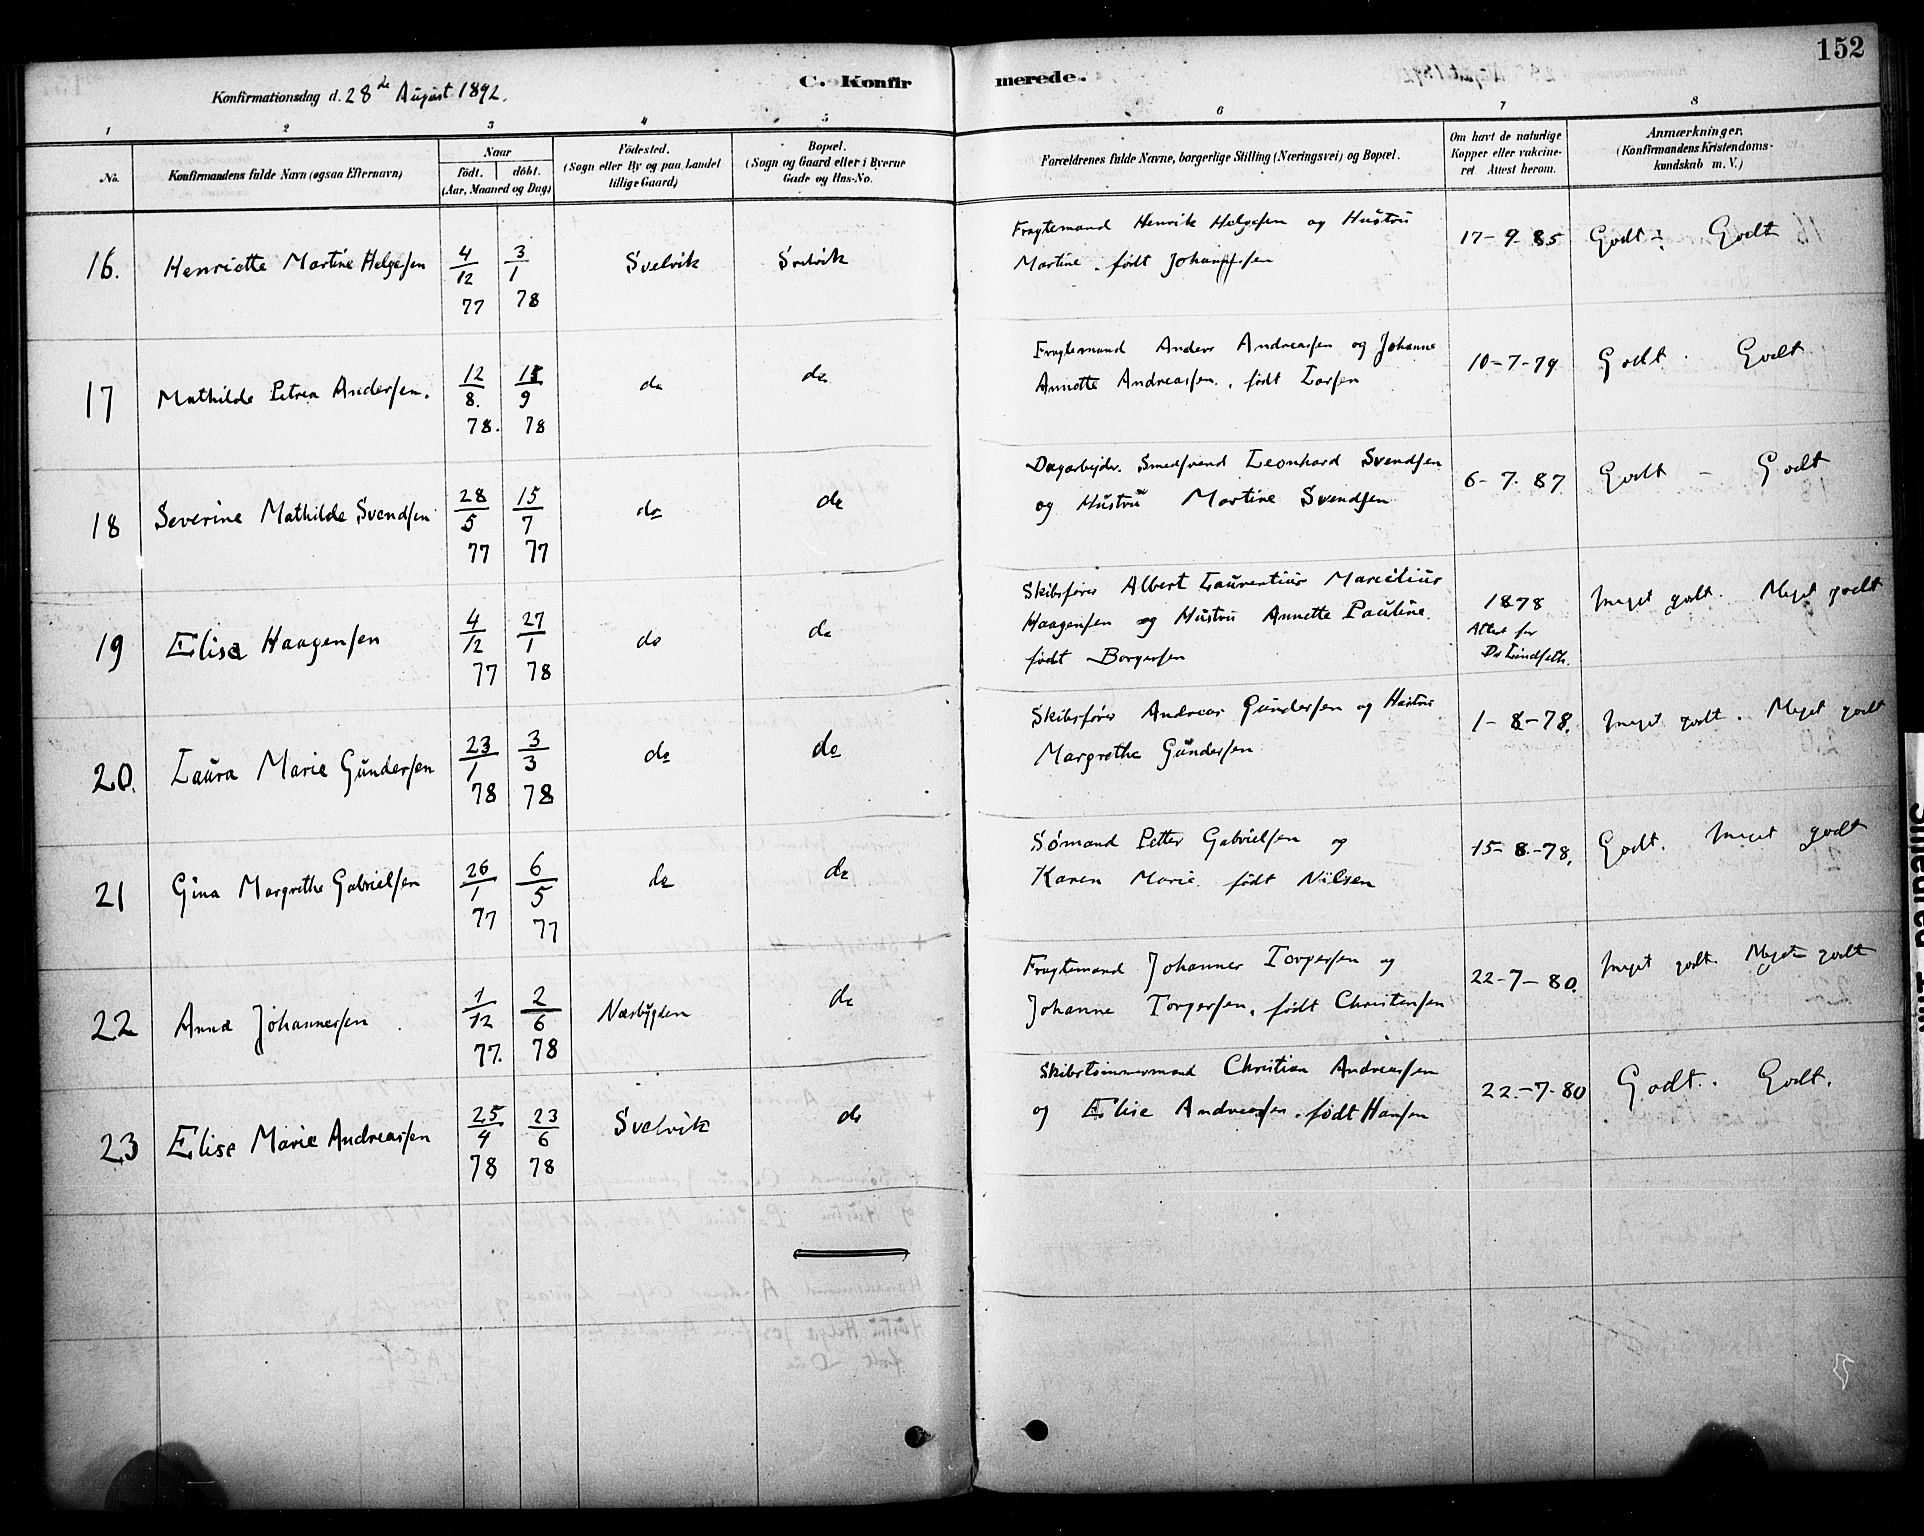 152
Konfirmationsdag d. 28de August 1892.
C. Konfirmerede.
1 2 3 4 5 6 7 8
No. Konfirmandens fulde Navn (ogsaa Efternavn) Naar født. døbt. (Aar, Maaned og Dag) Fødested. (Sogn eller By og paa Landet tillige Gaard) Bopæl. (Sogn og Gaard eller i Byerne Gade og Hus-No. Forældrenes fulde Navne, borgerlige Stilling (Næringsvei) og Bopæl. Om havt de naturlige Kopper eller vakcineret Attest herom. Anmærkninger, (Konfirmandens Kristendomskundskab m. V.)
16. Henriette Martine Helgesen 4/12 77 3/1 78 Svelvik Svelvik Fragtemand Henrik Helgesen og Hustru
Martine, født Johannesen 17-9-85 Godt - Godt
17 Mathilde Petrea Andersen. 12/8. 78. 15/9 78 do do Fragtemand Anders Andreassen og Johanne
Annette Andreassen, født Larsen 10-7-79 Godt. Godt
18 Severine Mathilde Svendsen 28/5 77 15/7 77 do do Dagarbejder. Smedsvend Leonhard Svendsen
og Hustru Martine Svendsen 6-7-87 Godt - Godt
19 Elisa Haagensen 4/12 77 27/1 78 do do Skibsfører Albert Laurentius Marcelius
Haagensen og Hustru Annette Pauline
født Borgersen 1878
Attest fra
Dr Lindseth. Meget godt. Meget godt
20. Laura Marie Gundersen 23/1 78 3/3 78 do do Skibsfører Andreas Gundersen og Hustru
Margrethe Gundersen 1-8-78. Meget godt. Meget godt
21 Gina Margrethe Gabrielsen 26/1 77 6/5 77 do do Sømand Petter Gabrielsen og
Karen Marie født Nilsen 15-8-78. Godt. Meget godt
22 Anna Johannesen 1/12 77. 2/6 78 Næsbygden do Fragtemand Johannes Torgersen og
Johanne Torgersen, født Christensen 22-7-80. Meget godt. Meget godt
23 Elise Marie Andreassen 25/4 78 23/6 78 Svelvik do Skibstømmermand Christian Andreassen
og Elise Andreassen. født Hansen 22-7-80 Godt. Godt.